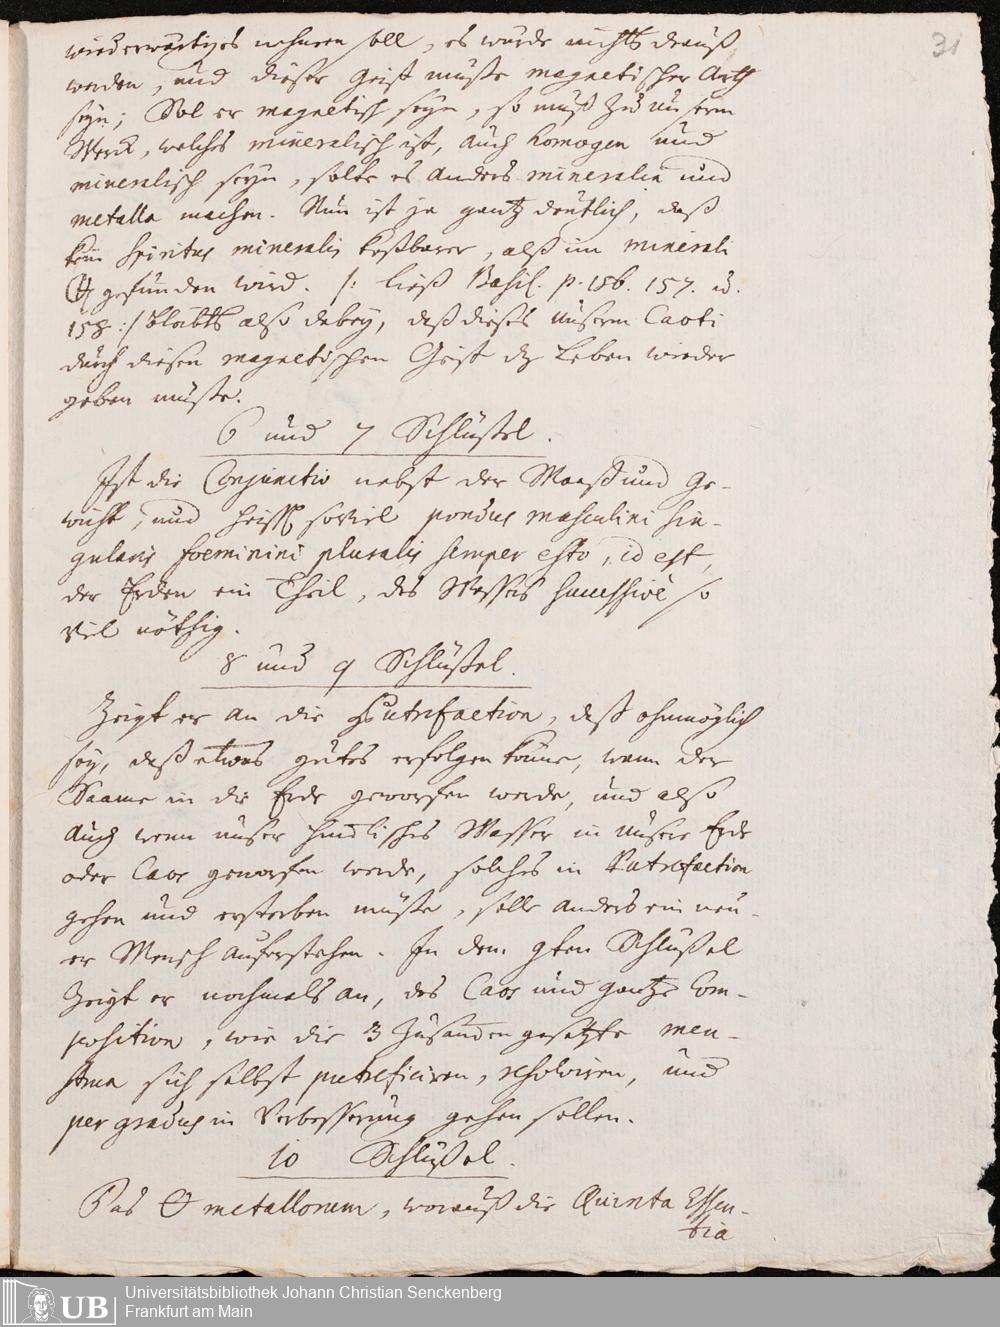 31
wiederwärtiges nehmen soll, es würde nichts drauß
werden, und dieser Geist müste magnetischer Arth
seyn; Sol er magnetisch seyn, so muß Zu unserm
Werck, welches mineralisch ist, auch homogen und
mineralisch seyn, solte es anders mineralia und
metalla machen. Nun ist ja gantz deutlich, daß
kein spiritus mineralis kostbarer, alß im minerali
gefunden wird. /: ließ Basil. p. 156. 157. u.
158 :/ bleibts also dabey, daß dieses unserm Caoti
durch diesen magnetischen Geist dz Leben wieder
geben müste.
6 und 7 Schlüßel.
Ist die Conjunctio nebst der Maaß und Ge-
wicht, und heist soviel pondus masculini sin-
gularis foeminini pluralis semper esto, id est,
der Erden ein Theil, des Wassers successivè so
viel nöthig.
8 und 9 Schlüßel.
Zeigt er an die Putrefaction, daß ohnmöglich
sey, daß etwas gutes erfolgen könne, wann der
Saame in die Erde geworfen werde, und also
auch wenn unser himlisches Wasser in unsere Erde
oder Caos geworfen werde, solches in Putrefaction
gehen und ersterben müste, solle anders ein neu-
er Mensch auferstehen. In dem 9ten Schlüßel
Zeigt er nochmals an, des Caos und gantze Com-
position, wie die 3 Zusammen gesetzte men-
strua sich selbst putreficiren, resolviren, und
per gradus in Verbesserung gehen sollen.
10 Schlüßel.
Das metallorum, worauß die Quinta Essen-
tia
Universitätsbibliothek Johann Christian Senckenberg
Frankfurt am Main
UB